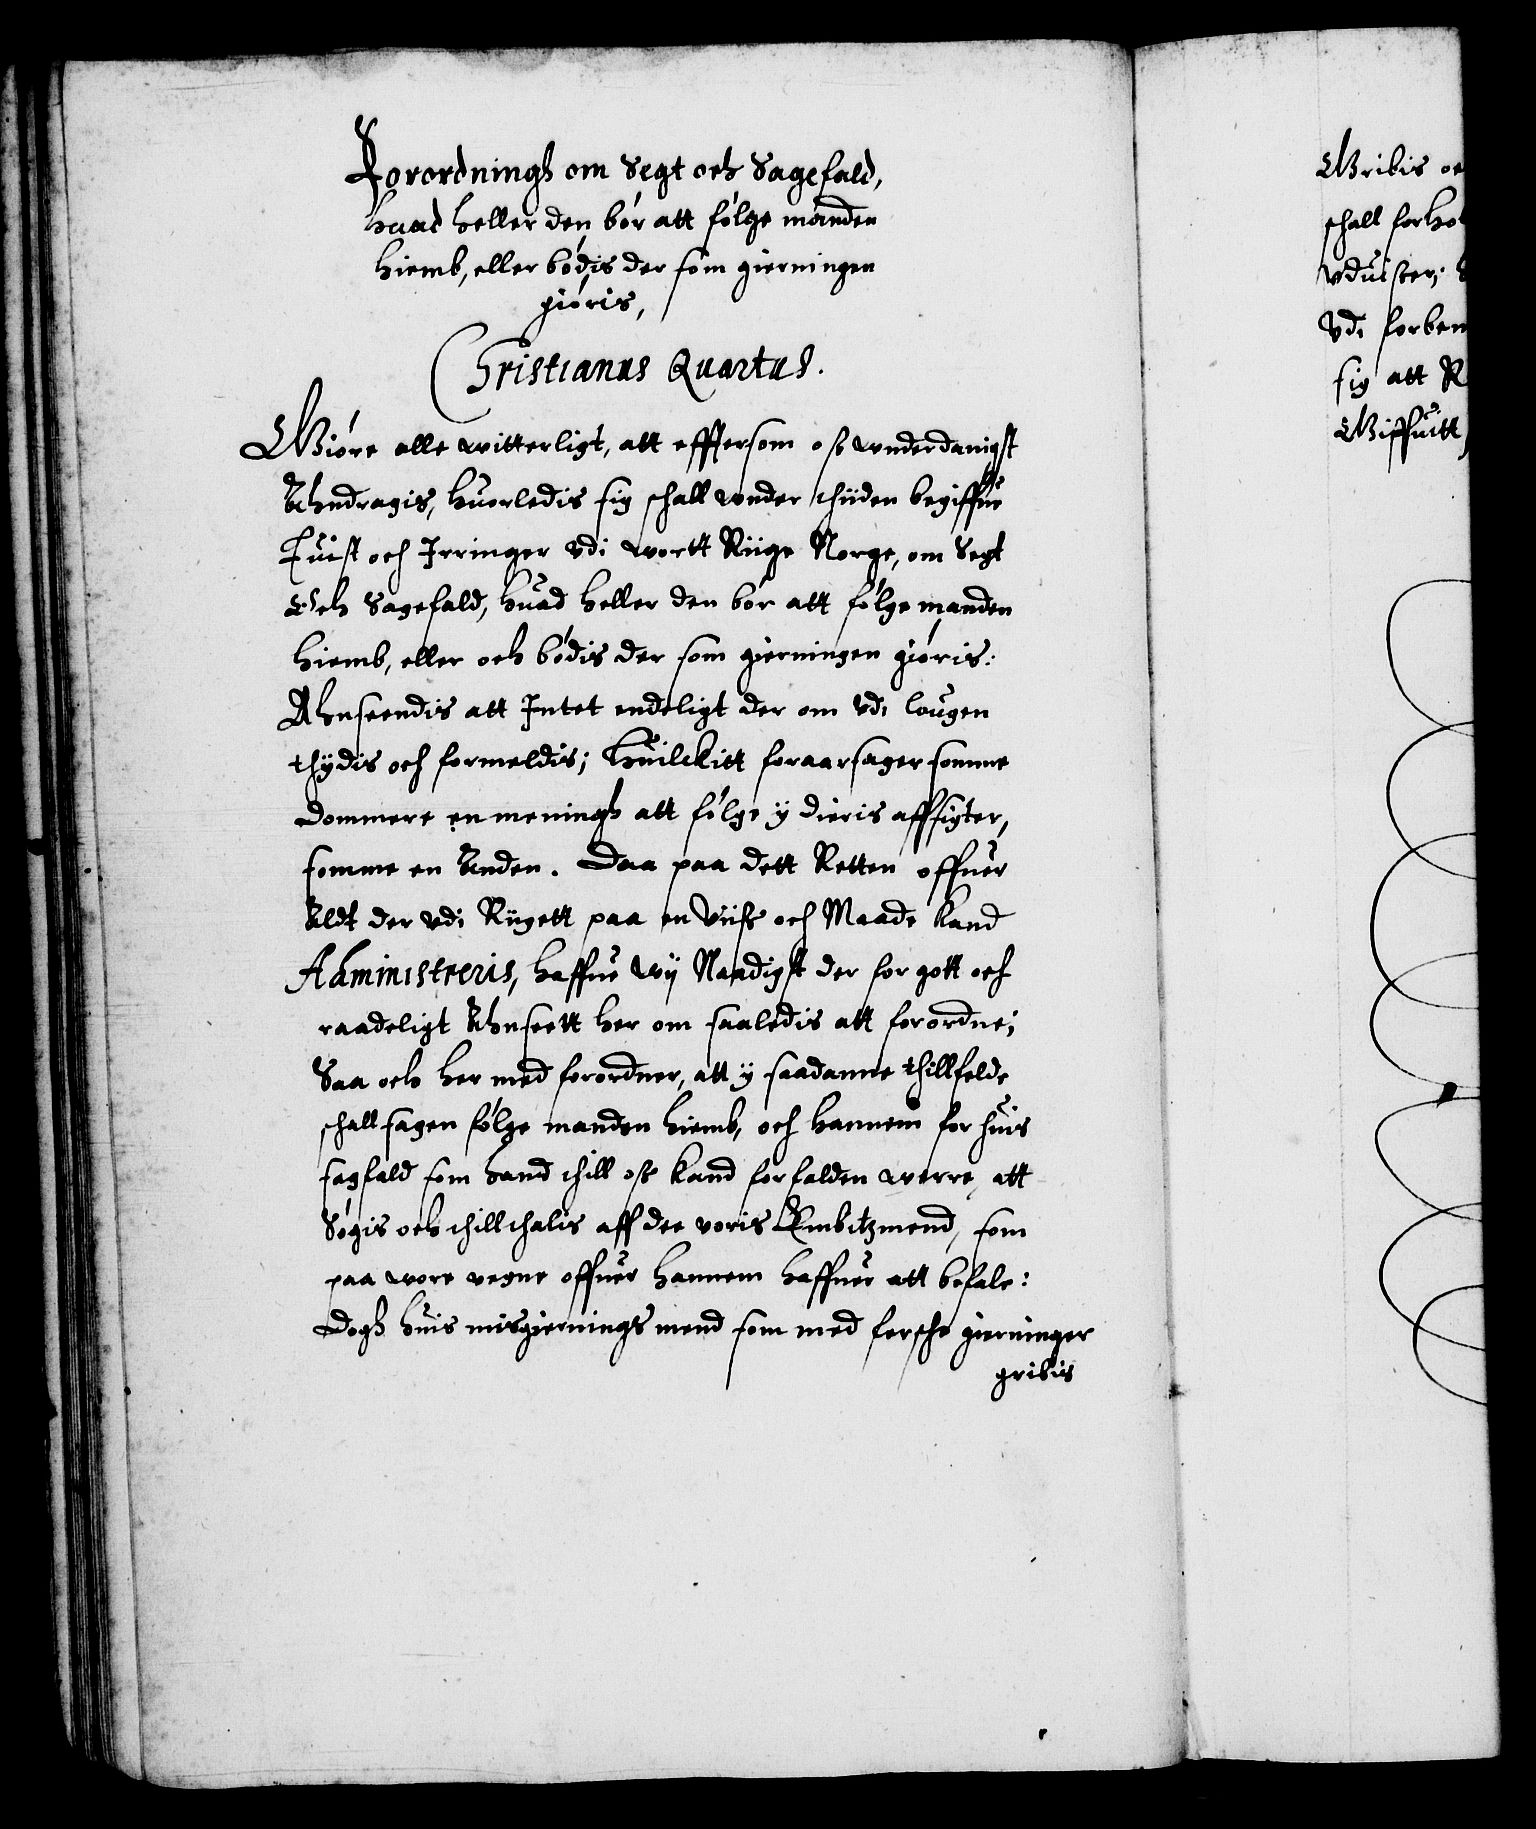 Forordningh om Segt och Sagefald,
huad heller den bór att fólge manden
hiemb, eller bódis der som gierningen
gióris,
Christianus Quartus.
Gióre alle witterligt, att effttersom oss wnderdanigst
Ahndragis, huorledis sig schall wnder thiiden begiffue
Tuist och Irringer vdi wortt Riige Norge, om Segt
Och Sagefald, huad heller den bór att fólge manden
hiemb, eller och bódis der som gierningen gióris:
Ahnseendis att Intet endeligt der om vdi lougen
thydis och formeldis; Huilckitt foraarsager somme
Dommere en meningh att fólge ÿ dieris affsigter,
somme en Anden. Daa paa dett Retten offuer
Aldt der vdi Riigett paa en Viiss och Maade kand
Administreris, haffue Wÿ Naadigst der for gott och
raadeligt Ahnseett her om saaledis att forordne;
Saa och her med forordner, att ÿ saadanne thillfelde
schall sagen fólge manden hiemb, och hannem for huis
sagfald som hand thill oss kand forfalden werre, att
Sógis och thillthalis aff dee voris Embitzmend, som
paa wore vegne offuer hannem haffuer att befale:
Dogh huis misgiernings mend som med fersche gierninger
gribis
Gribis oc
schall forho
vduiser;
Vdi forben
sig att R